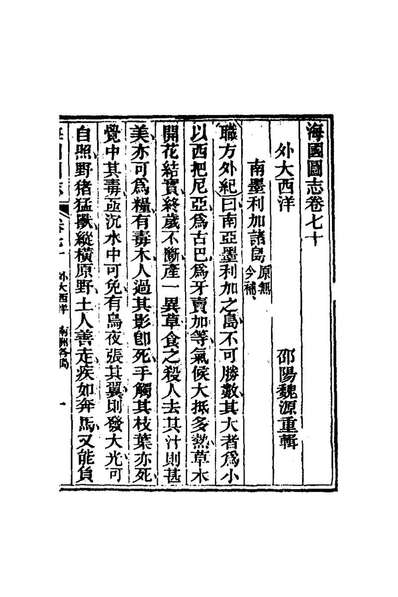 海國圖志卷七十
邵陽魏源重輯
外大西洋
南墨利加諸島原無今補
職方外紀曰南亞墨利加之島不可勝數其大者爲小
以西把尼亞爲古巴爲牙賣加等氣候大抵多熱草木
開花結實終歲不斷產一異草食之殺人去其汁則甚
美亦可爲糧有毒木人過其影卽死手觸其枝葉亦死
覺中其毒亟沉水中可免有鳥夜張其翼則發大光可
自照野猪猛獸縱橫原野土人善走疾如奔馬又能負
卷七十 外大西洋 南洲各島 一